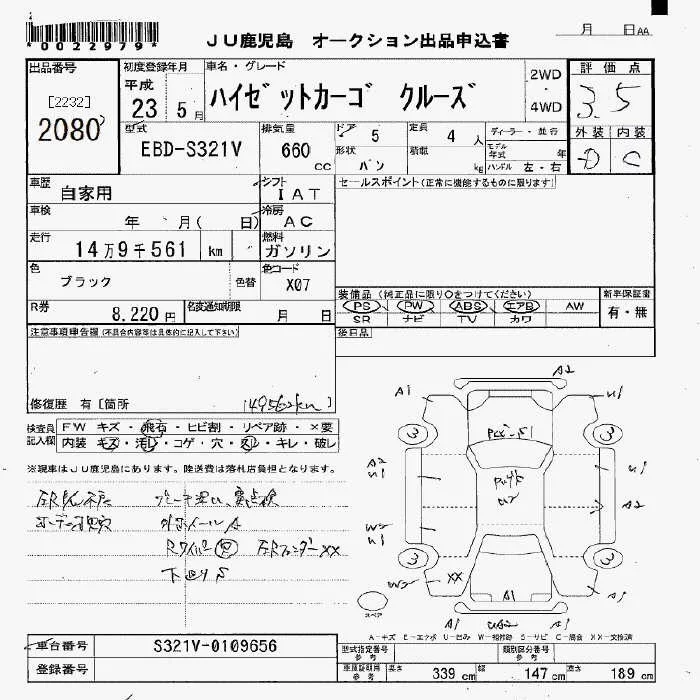 *0022979*
JU鹿児島 オークション出品申込書
月 日 AA
出品番号
[2232]
2080
初度登録年月
平成
23 5月
車名・グレード
ハイゼットカーゴ クルーズ
2WD
・
4WD
評価点
3.5
外装 内装
D C
型式
EBD-S321V
排気量
660 cc
ドア 5
形状 バン
定員 4 人
積載 kg
ディーラー・並行
モデル年式 年
ハンドル 左・右
車歴
自家用
シフト
IAT
セールスポイント(正常に機能するものに限ります)
車検
年 月( 日)
冷房
AC
走行
14万9千561 km
燃料
ガソリン
色
ブラック
色替
色コード
X07
R券
8.220円
名変通知期限
月 日
装備品(純正品に限り○をつけてください)
PS PW ABS エアB AW
SR ナビ TV カワ
新車保証書
有・無
注意事項申告欄(不具合内容等は具体的に記入して下さい)
後日品
修復歴 有[箇所
149562km]
検査員記入欄
FW キズ・飛石・ヒビ割・リペア跡・×要
内装 キズ・汚レ・コゲ・穴・スレ・キレ・破レ
※現車はJU鹿児島にあります。陸送費は落札店負担となります。
外ホイールA
RフェンダーXX
下回りS
A2
A1
U1
3
3
A2
U1
U1
A2
W2
U1
3
3
W2
XX
A1
A1
A1
スペア
A-キズ E-エクボ U-凹み W-補修跡 S-サビ C-腐食 XX-交換済
車台番号
S321V-0109656
登録番号
型式指定番号 参考
類別区分番号 参考
車庫証明用 参考
長さ 339 cm
幅 147 cm
高さ 189 cm